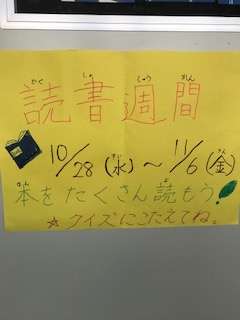 どく しょ しゅう かん
読書週間
10/28(水)～11/6(金)
本をたくさん読もう!
☆クイズにこたえてね。